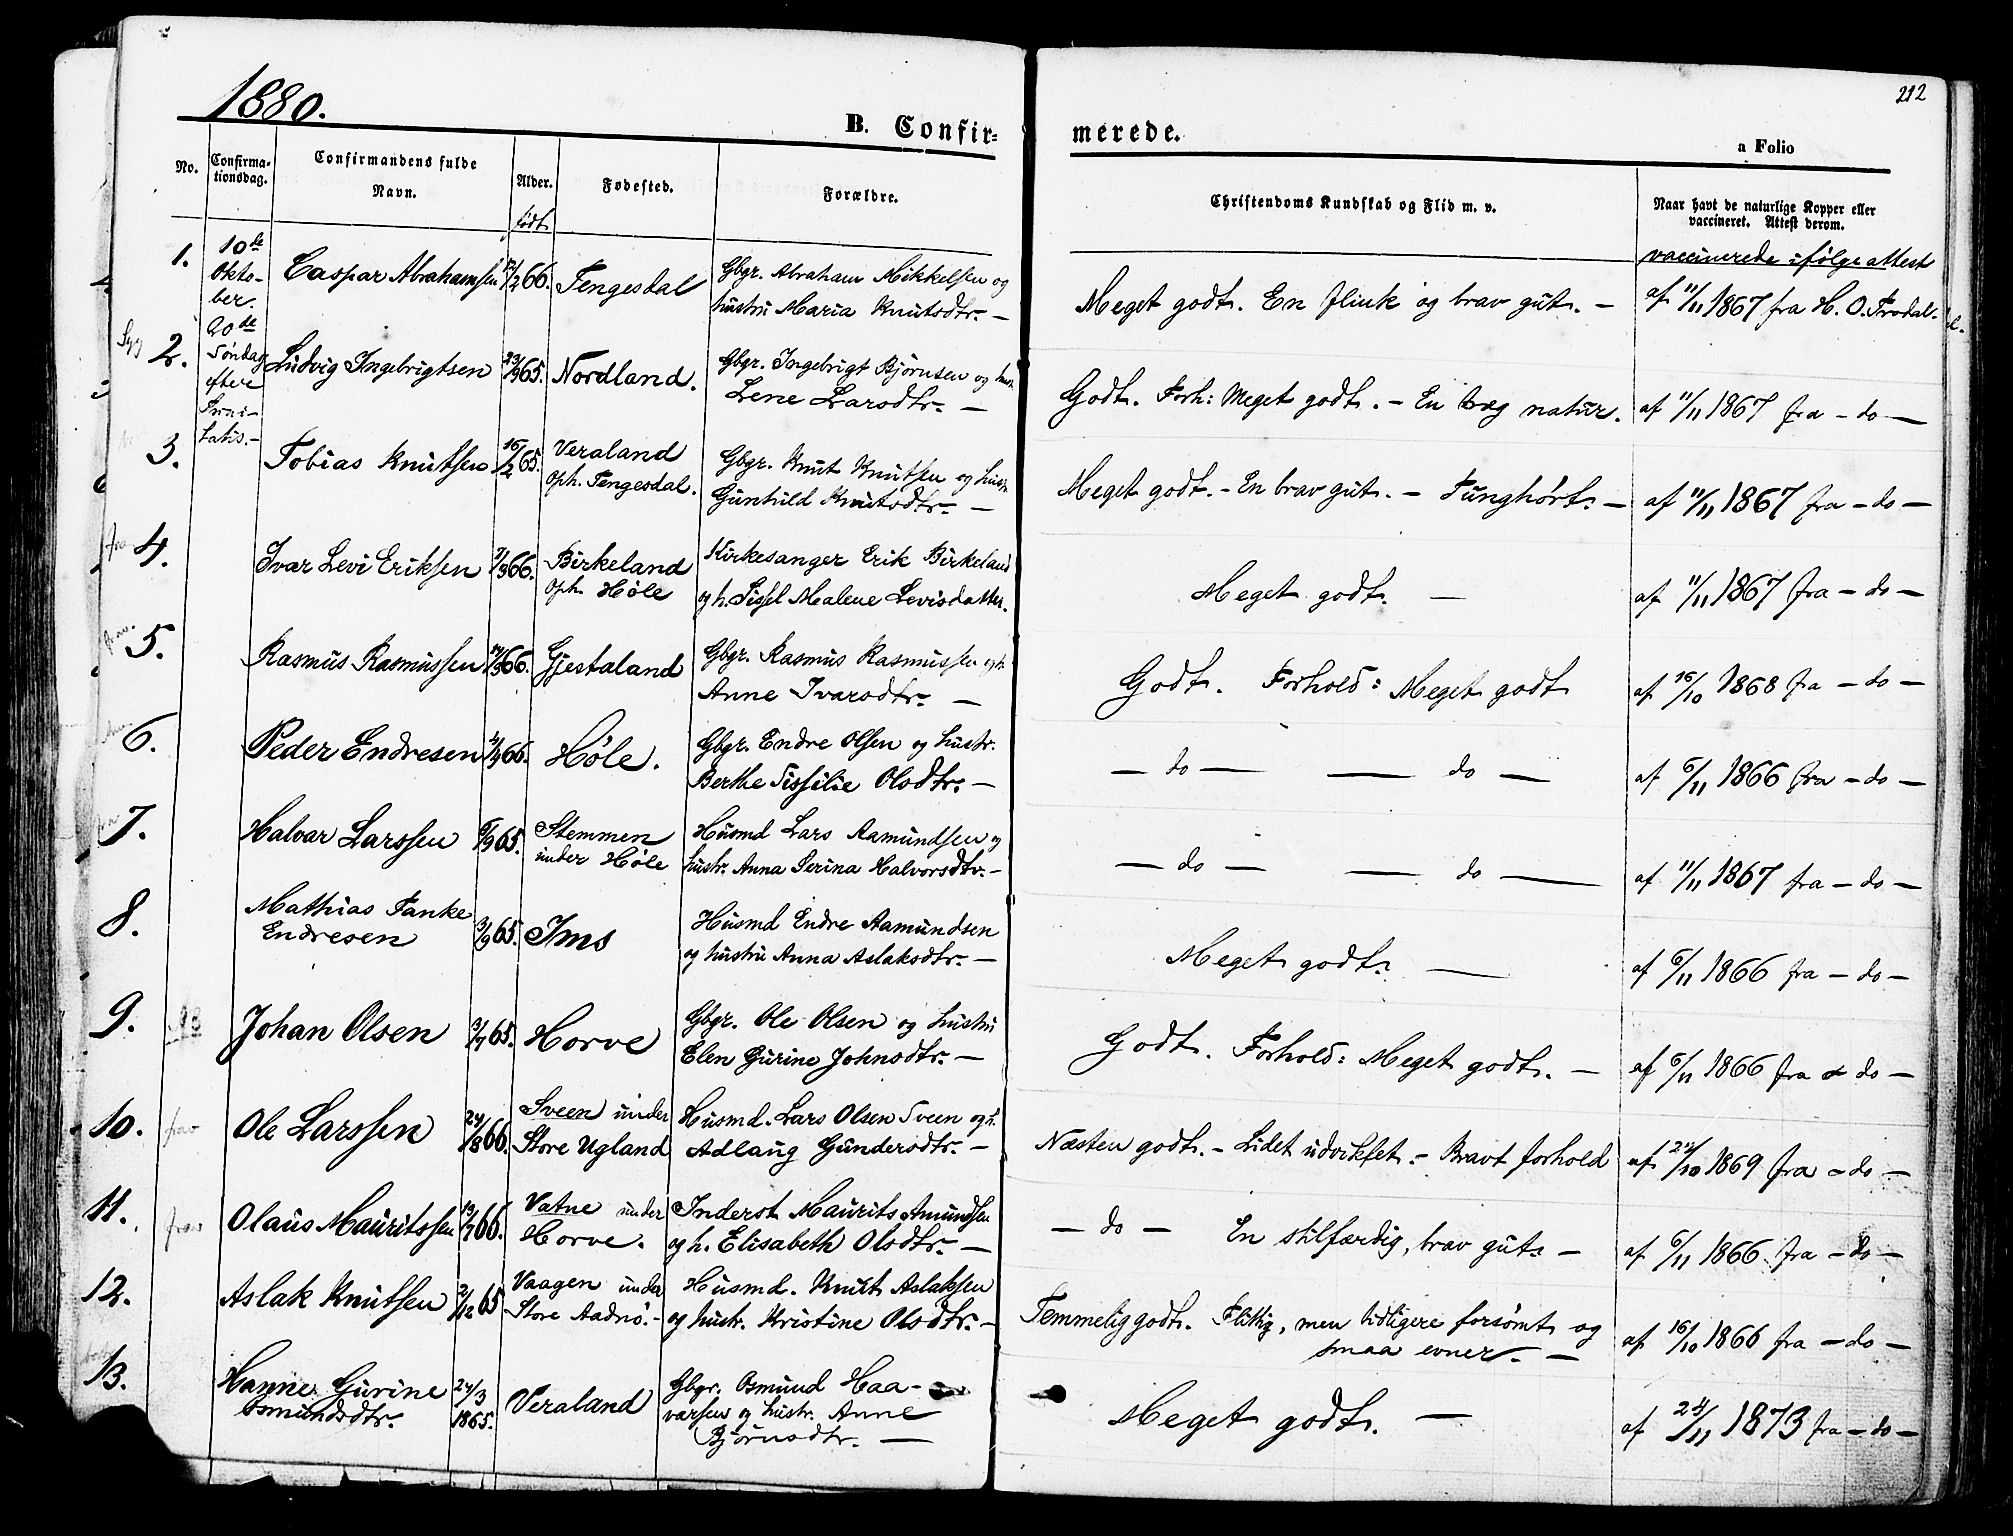 1880.
212
B. Confir=
merede.
a Folio
No.
Confirma-
tionsdag.
Confirmandens fulde
Navn.
Alder.
Fødested.
Forældre.
Christendoms Kundskab og Flid m. v.
Naar havt de naturlige Kopper eller
vaccineret. Attest derom.
født
vaccinerede ifølge attest
10de
Okto-
ber.
20de
Søndag
efter
Trini-
tatis.-
1. Caspar Abrahamsen /2 66. Tengesdal Gbgr. Abraham Mikkelsen og
hustru Maria Knutsdtr. —
Meget godt. En flink og brav gut. — af 11/11 1867 fra H. O. Frodal.
2. Ludvig Ingebrigtsen 23/9 65. Nordland. Gbgr. Ingebrigt Bjørnsen og hust.
Lene Larsdtr. —
Godt. Forh: Meget godt. — En træg natur. af 11/11 1867 fra — do —
3. Tobias Knutsen 16/2 65. Veraland
oph. Tengesdal.
Gbgr. Knut Knutsen og hustr.
Gunhild Knutsdtr. —
Meget godt. — En brav gut. — Tunghørt. — af 11/11 1867 fra — do —
4. Ivar Levi Eriksen 7/3 66. Birkeland
oph. Høle
Kirkesanger Erik Birkeland
og h. Sissel Malene Levisdatter.
Meget godt. — af 11/11 1867 fra — do —
5. Rasmus Rasmussen 66. Gjestaland Gbgr. Rasmus Rasmussen og h.
Anne Ivarsdtr. —
Godt. Forhold: Meget godt af 16/10 1868 fra — do —
6. Peder Endresen 66. Høle. Gbgr. Endre Olsen og hustr.
Berthe Sissilie Olsdtr. —
— do — — do — af 6/11 1866 fra — do —
7. Halvar Larssen 65. Stemmen
under Høle
Husmd Lars Aamundsen og
hustr. Anna Serina Halvorsdtr. —
— do — — do — af 11/11 1867 fra — do —
8. Mathias Tanke
Endresen
3/9 65. Ims Husmd Endre Aamundsen
og hustru Anna Aslaksdtr. —
Meget godt. — af 6/11 1866 fra — do —
9. Johan Olsen 3/7 65. Horve Gbgr. Ole Olsen og hustru
Elen Gurine Johnsdtr. —
Godt. Forhold: Meget godt. — af 6/11 1866 fra — do —
10. Ole Larssen 24/8 66. Sveen under
Store Ugland
Husmd. Lars Olsen Sveen og h.
Adlaug Gundersdtr. —
Næsten godt. — Lidet udviklet. — Bravt forhold af /10 1869 fra — do —
11. Olaus Mauritssen 13/7 66. Vatne under
Horve.
Inderst Maurits Amundsen
og h. Elisabeth Olsdtr. —
— do — En stilfærdig, brav gut — af 6/11 1866 fra — do —
12. Aslak Knutsen 2/12 65 Vaagen under
Store Aadnø. —
Husmd. Knut Aslaksen
og hustr. Kristine Olsdtr. —
Temmelig godt. Flittig, men tidligere forsømt og
smaa evner. —
af 16/10 1866 fra — do —
13. Hanne Gurine
Osmundsdtr.
24/3
1865.
Veraland Gbgr. Osmund Haa-
varsen og hustr. Anne
Bjørnsdtr. —
Meget godt. — af 24/11 1873 fra — do —